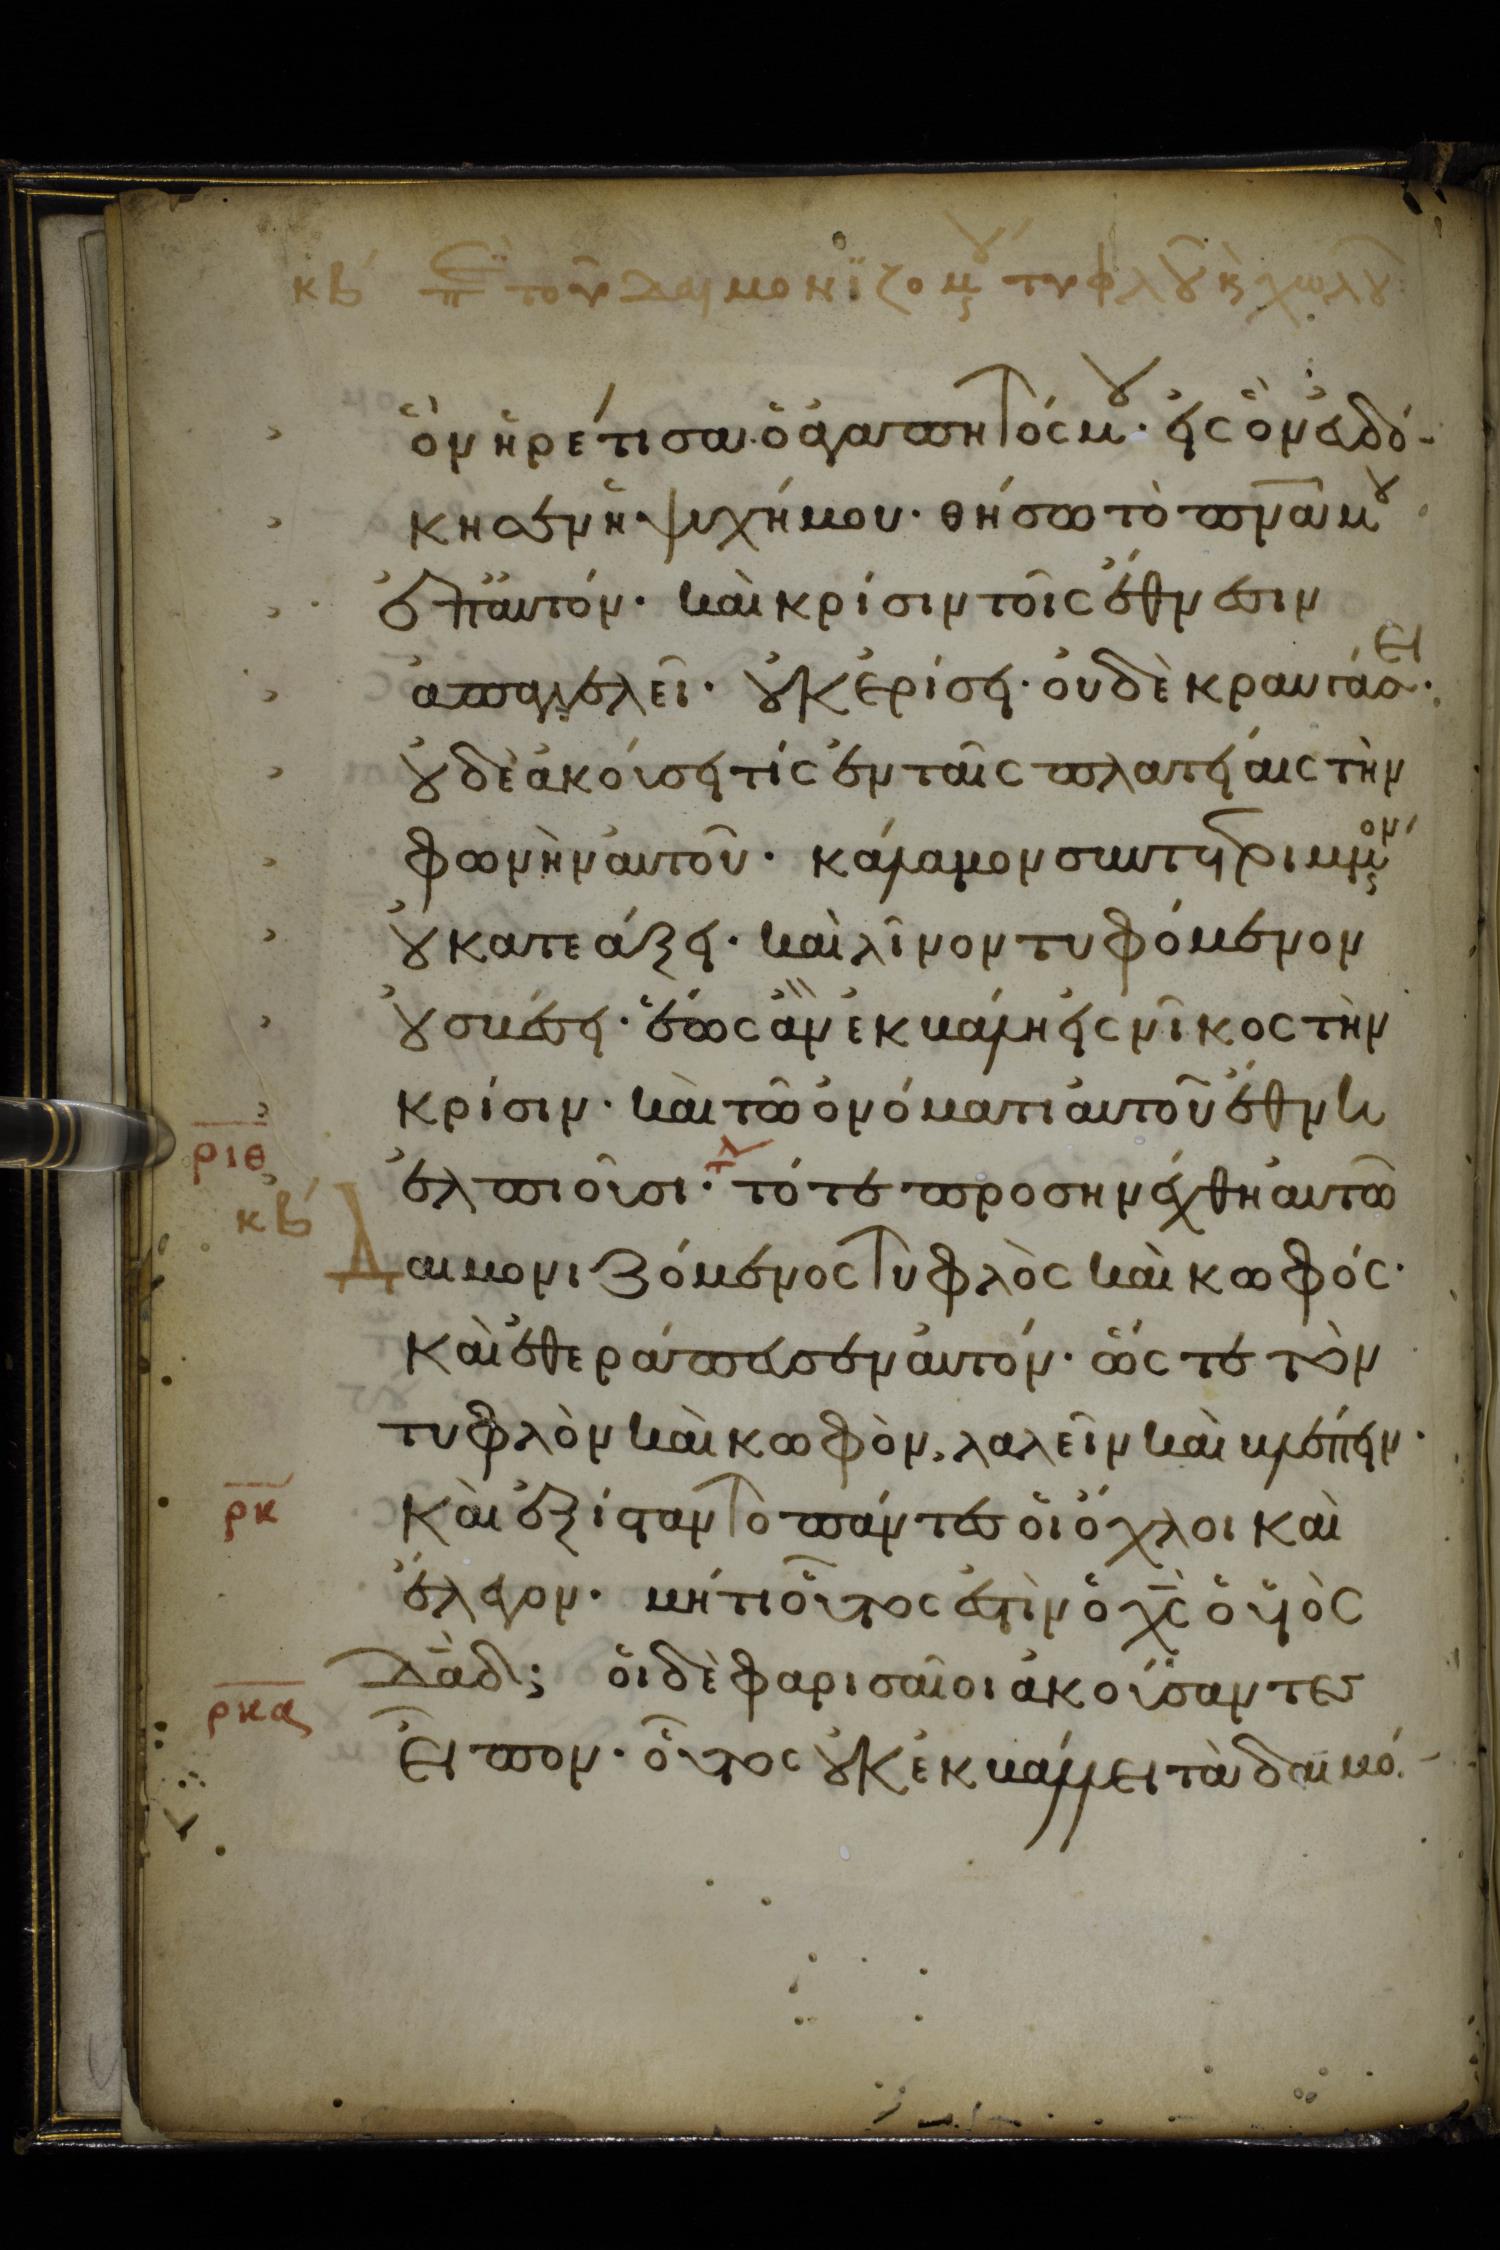 κβ´ περὶ τοῦ δαιμονιζομένου τυφλοῦ κ χωλοῦ
ὃν ἡρέτισα· ὁ ἀγαπητός μου· εἰς ὃν εὐδό-
κησεν ἡ ψυχή μου· θήσω τὸ πνα μου
ἐπ' αυτόν· καὶ κρίσιν τοῖς ἔθνεσιν
ἀπαγγελεῖ· οὐκ ἐρίσει· οὐδὲ κραυγάσει·
οὐδὲ ἀκούσει τίς ἐν ταῖς πλατείαις τὴν
φωνὴν αὐτοῦ· κάλαμον συντετριμμένον
οὐ κατεάξει· καὶ λῖνον τυφόμενον
οὐ σβέσει· ἕως ἂν ἐκβάλη εἰς νῖκος τὴν
κρίσιν· καὶ τῶ ὀνόματι αὐτοῦ ἔθνη
ριθ ἐλπιοῦσι· τότε προσηνέχθη αὐτῶ
κβ´ Δαιμονιζόμενος τυφλὸς καὶ κωφός·
καὶ ἐθεράπευσεν αὐτόν· ὥς τε τὸν
τυφλὸν καὶ κωφὸν, λαλεῖν καὶ βλέπειν·
ρκ καὶ ἐξίσταντο πάντες οἱ ὄχλοι καὶ
ἔλεγον· μήτι οὗτός ἐστὶν ὁ χς ὁ υἱὸς
ρκα δαδ; οἱ δὲ φαρισαῖοι ἀκούσαντες
εἶπον· οὗτος οὐκ ἐκβάλλει τὰ δαιμό-